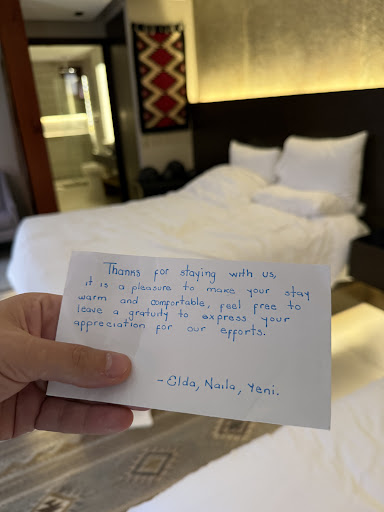 Thanks for staying with us,
it is a pleasure to make your stay
warm and comfortable, feel free to
leave a gratuity to express your
appreciation for our efforts.
- Elda, Naila, Yeni.